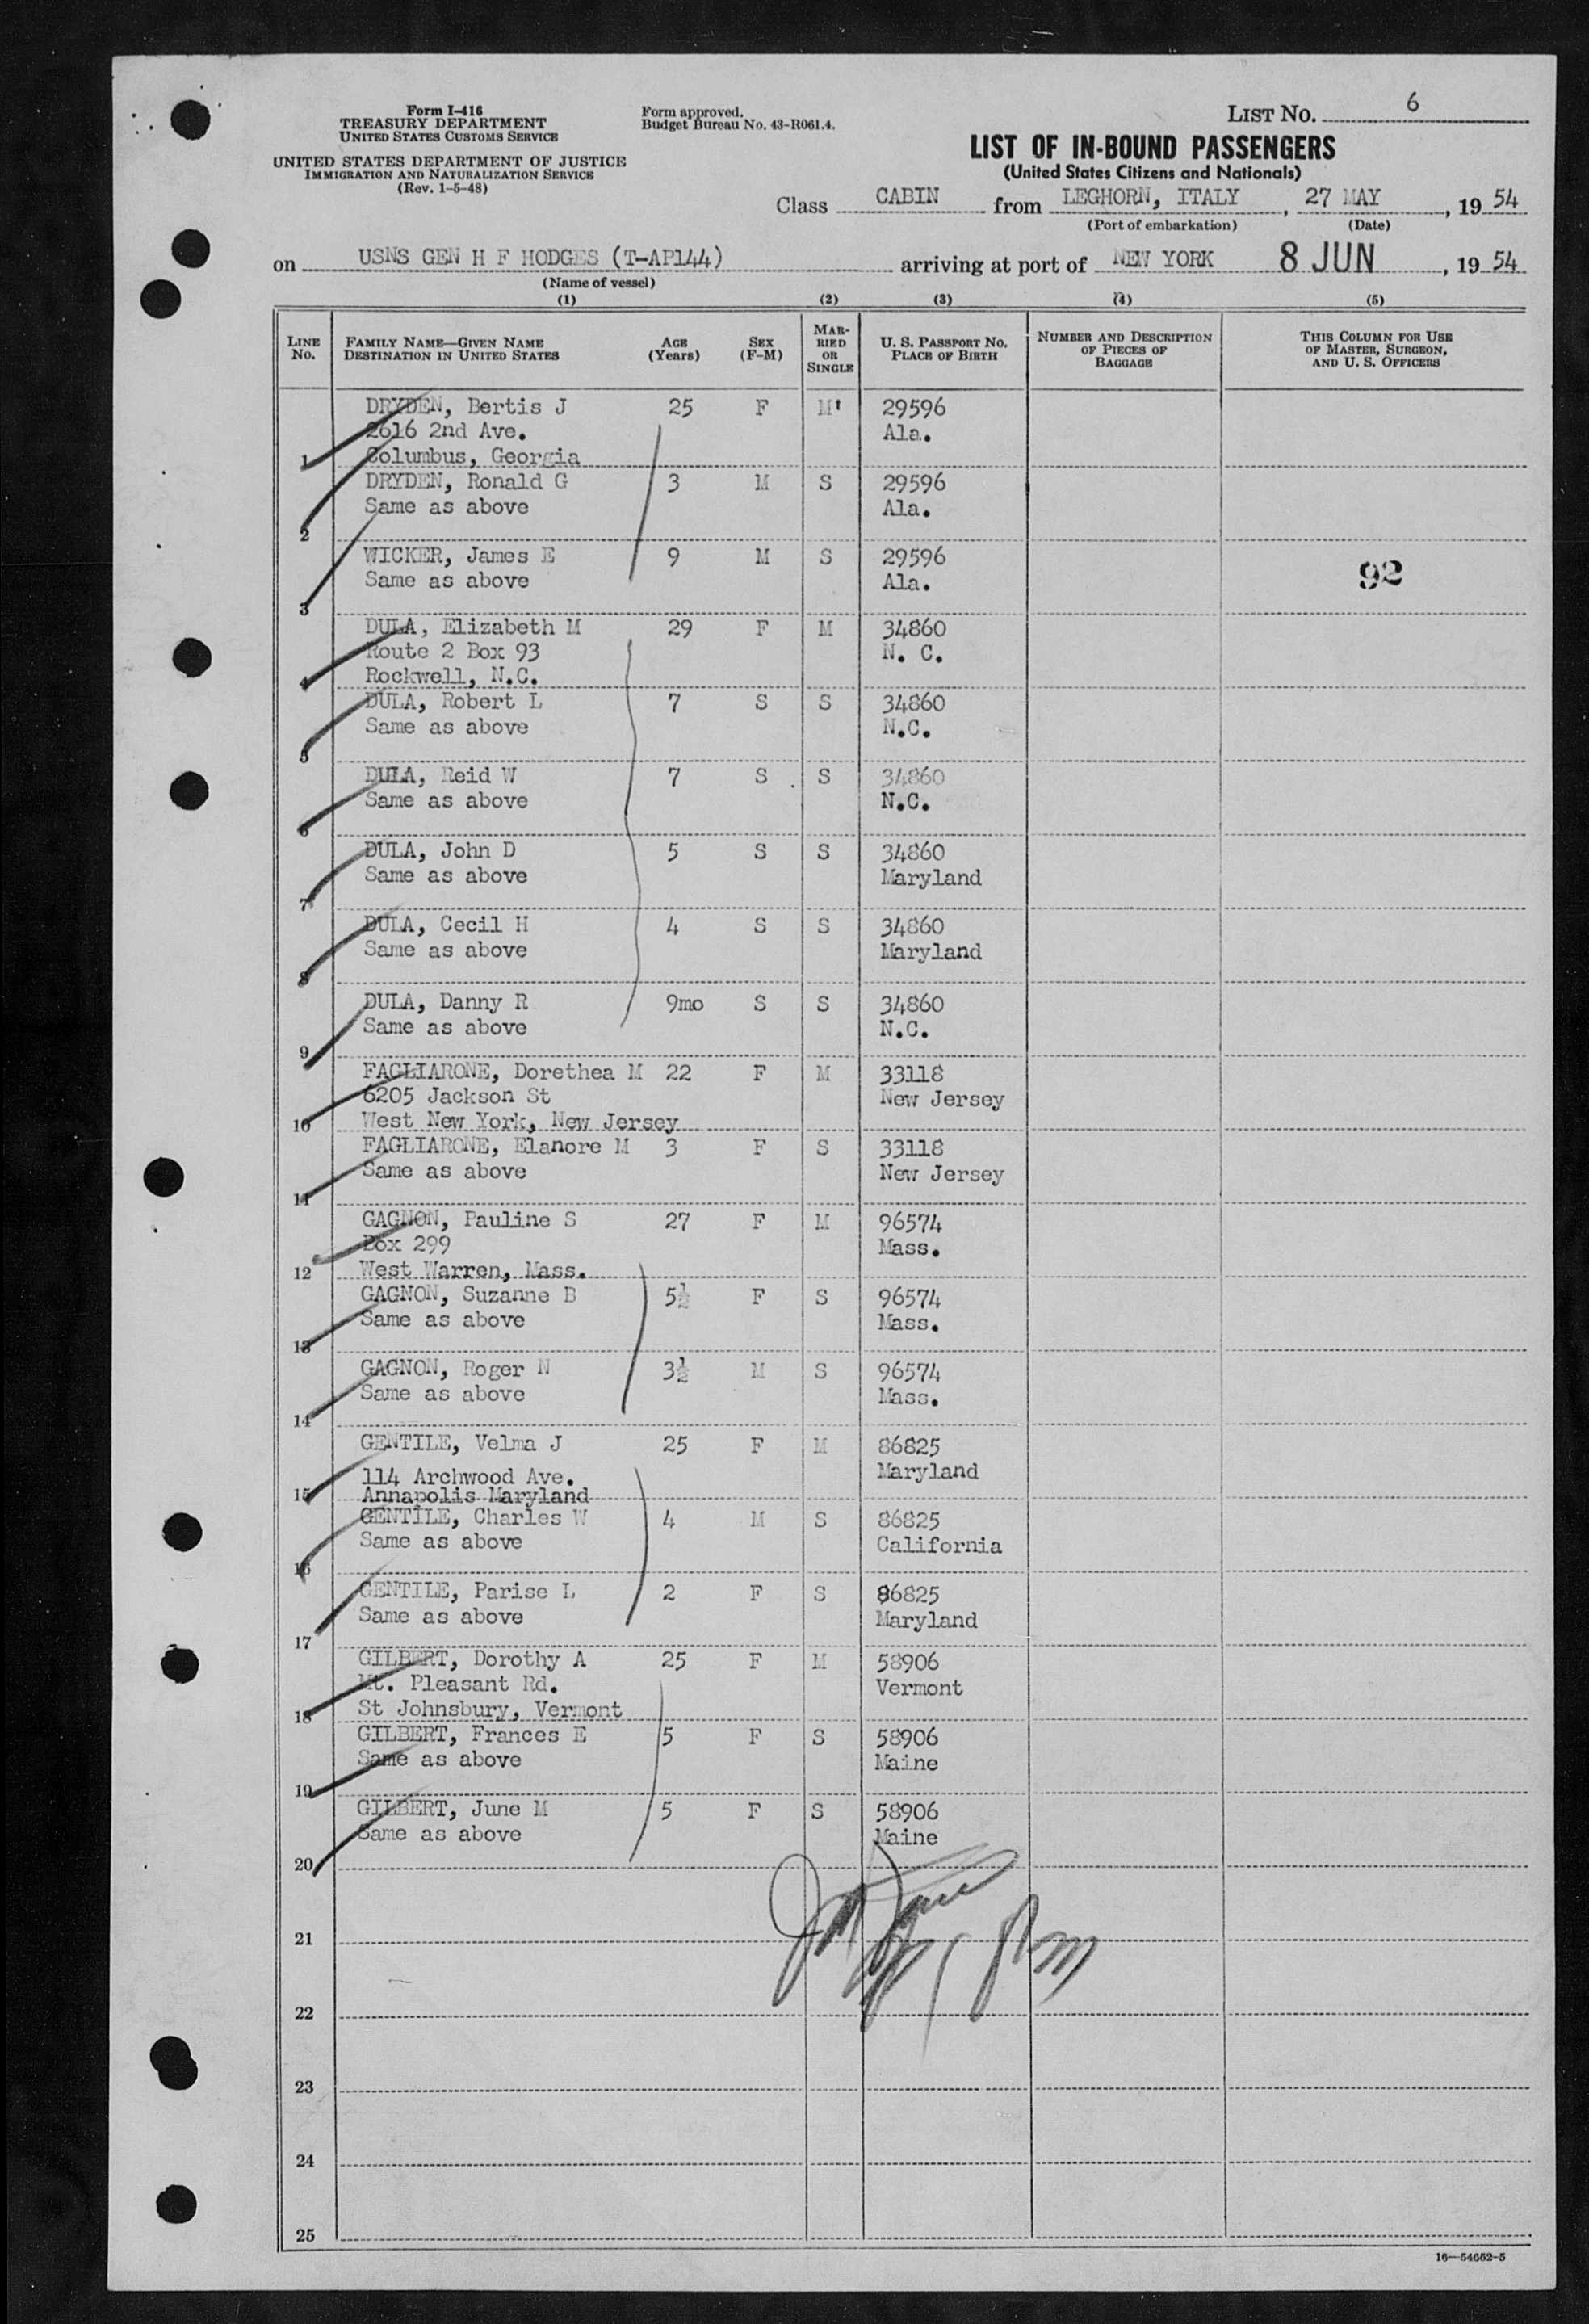 Form I-416
TREASURY DEPARTMENT
UNITED STATES CUSTOMS SERVICE
UNITED STATES DEPARTMENT OF JUSTICE
IMMIGRATION AND NATURALIZATION SERVICE
(Rev. 1-5-48)
Form approved.
Budget Bureau No. 43-R061.4.
LIST No. 6
LIST OF IN-BOUND PASSENGERS
(United States Citizens and Nationals)
Class CABIN from LEGHORN, ITALY, 27 MAY, 19 54
(Port of embarkation) (Date)
on USNS GEN H F HODGES (T-AP144) arriving at port of NEW YORK 8 JUN, 19 54
(Name of vessel)
(1) (2) (3) (4) (5)
LINE No. FAMILY NAME—GIVEN NAME DESTINATION IN UNITED STATES AGE (Years) SEX (F-M) MARRIED OR SINGLE U. S. PASSPORT No. PLACE OF BIRTH NUMBER AND DESCRIPTION OF PIECES OF BAGGAGE THIS COLUMN FOR USE OF MASTER, SURGEON, AND U. S. OFFICERS
DRYDEN, Bertis J 25 F M' 29596
2616 2nd Ave. Ala.
1 Columbus, Georgia
DRYDEN, Ronald G 3 M S 29596
Same as above Ala.
2
WICKER, James E 9 M S 29596
Same as above Ala. 92
3
DULA, Elizabeth M 29 F M 34860
Route 2 Box 93 N. C.
4 Rockwell, N.C.
DULA, Robert L 7 S S 34860
Same as above N.C.
5
DULA, Reid W 7 S S 34860
Same as above N.C.
6
DULA, John D 5 S S 34860
Same as above Maryland
7
DULA, Cecil H 4 S S 34860
Same as above Maryland
8
DULA, Danny R 9mo S S 34860
Same as above N.C.
9
FAGLIARONE, Dorethea M 22 F M 33118
6205 Jackson St New Jersey
10 West New York, New Jersey
FAGLIARONE, Elanore M 3 F S 33118
Same as above New Jersey
11
GAGNON, Pauline S 27 F M 96574
Box 299 Mass.
12 West Warren, Mass.
GAGNON, Suzanne B 5½ F S 96574
Same as above Mass.
13
GAGNON, Roger N 3½ M S 96574
Same as above Mass.
14
GENTILE, Velma J 25 F M 86825
114 Archwood Ave. Maryland
15 Annapolis Maryland
GENTILE, Charles W 4 M S 86825
Same as above California
16
GENTILE, Parise L 2 F S 86825
Same as above Maryland
17
GILBERT, Dorothy A 25 F M 58906
Mt. Pleasant Rd. Vermont
18 St Johnsbury, Vermont
GILBERT, Frances E 5 F S 58906
Same as above Maine
19
GILBERT, June M 5 F S 58906
Same as above Maine
20
21
22
23
24
25
16—54652-5